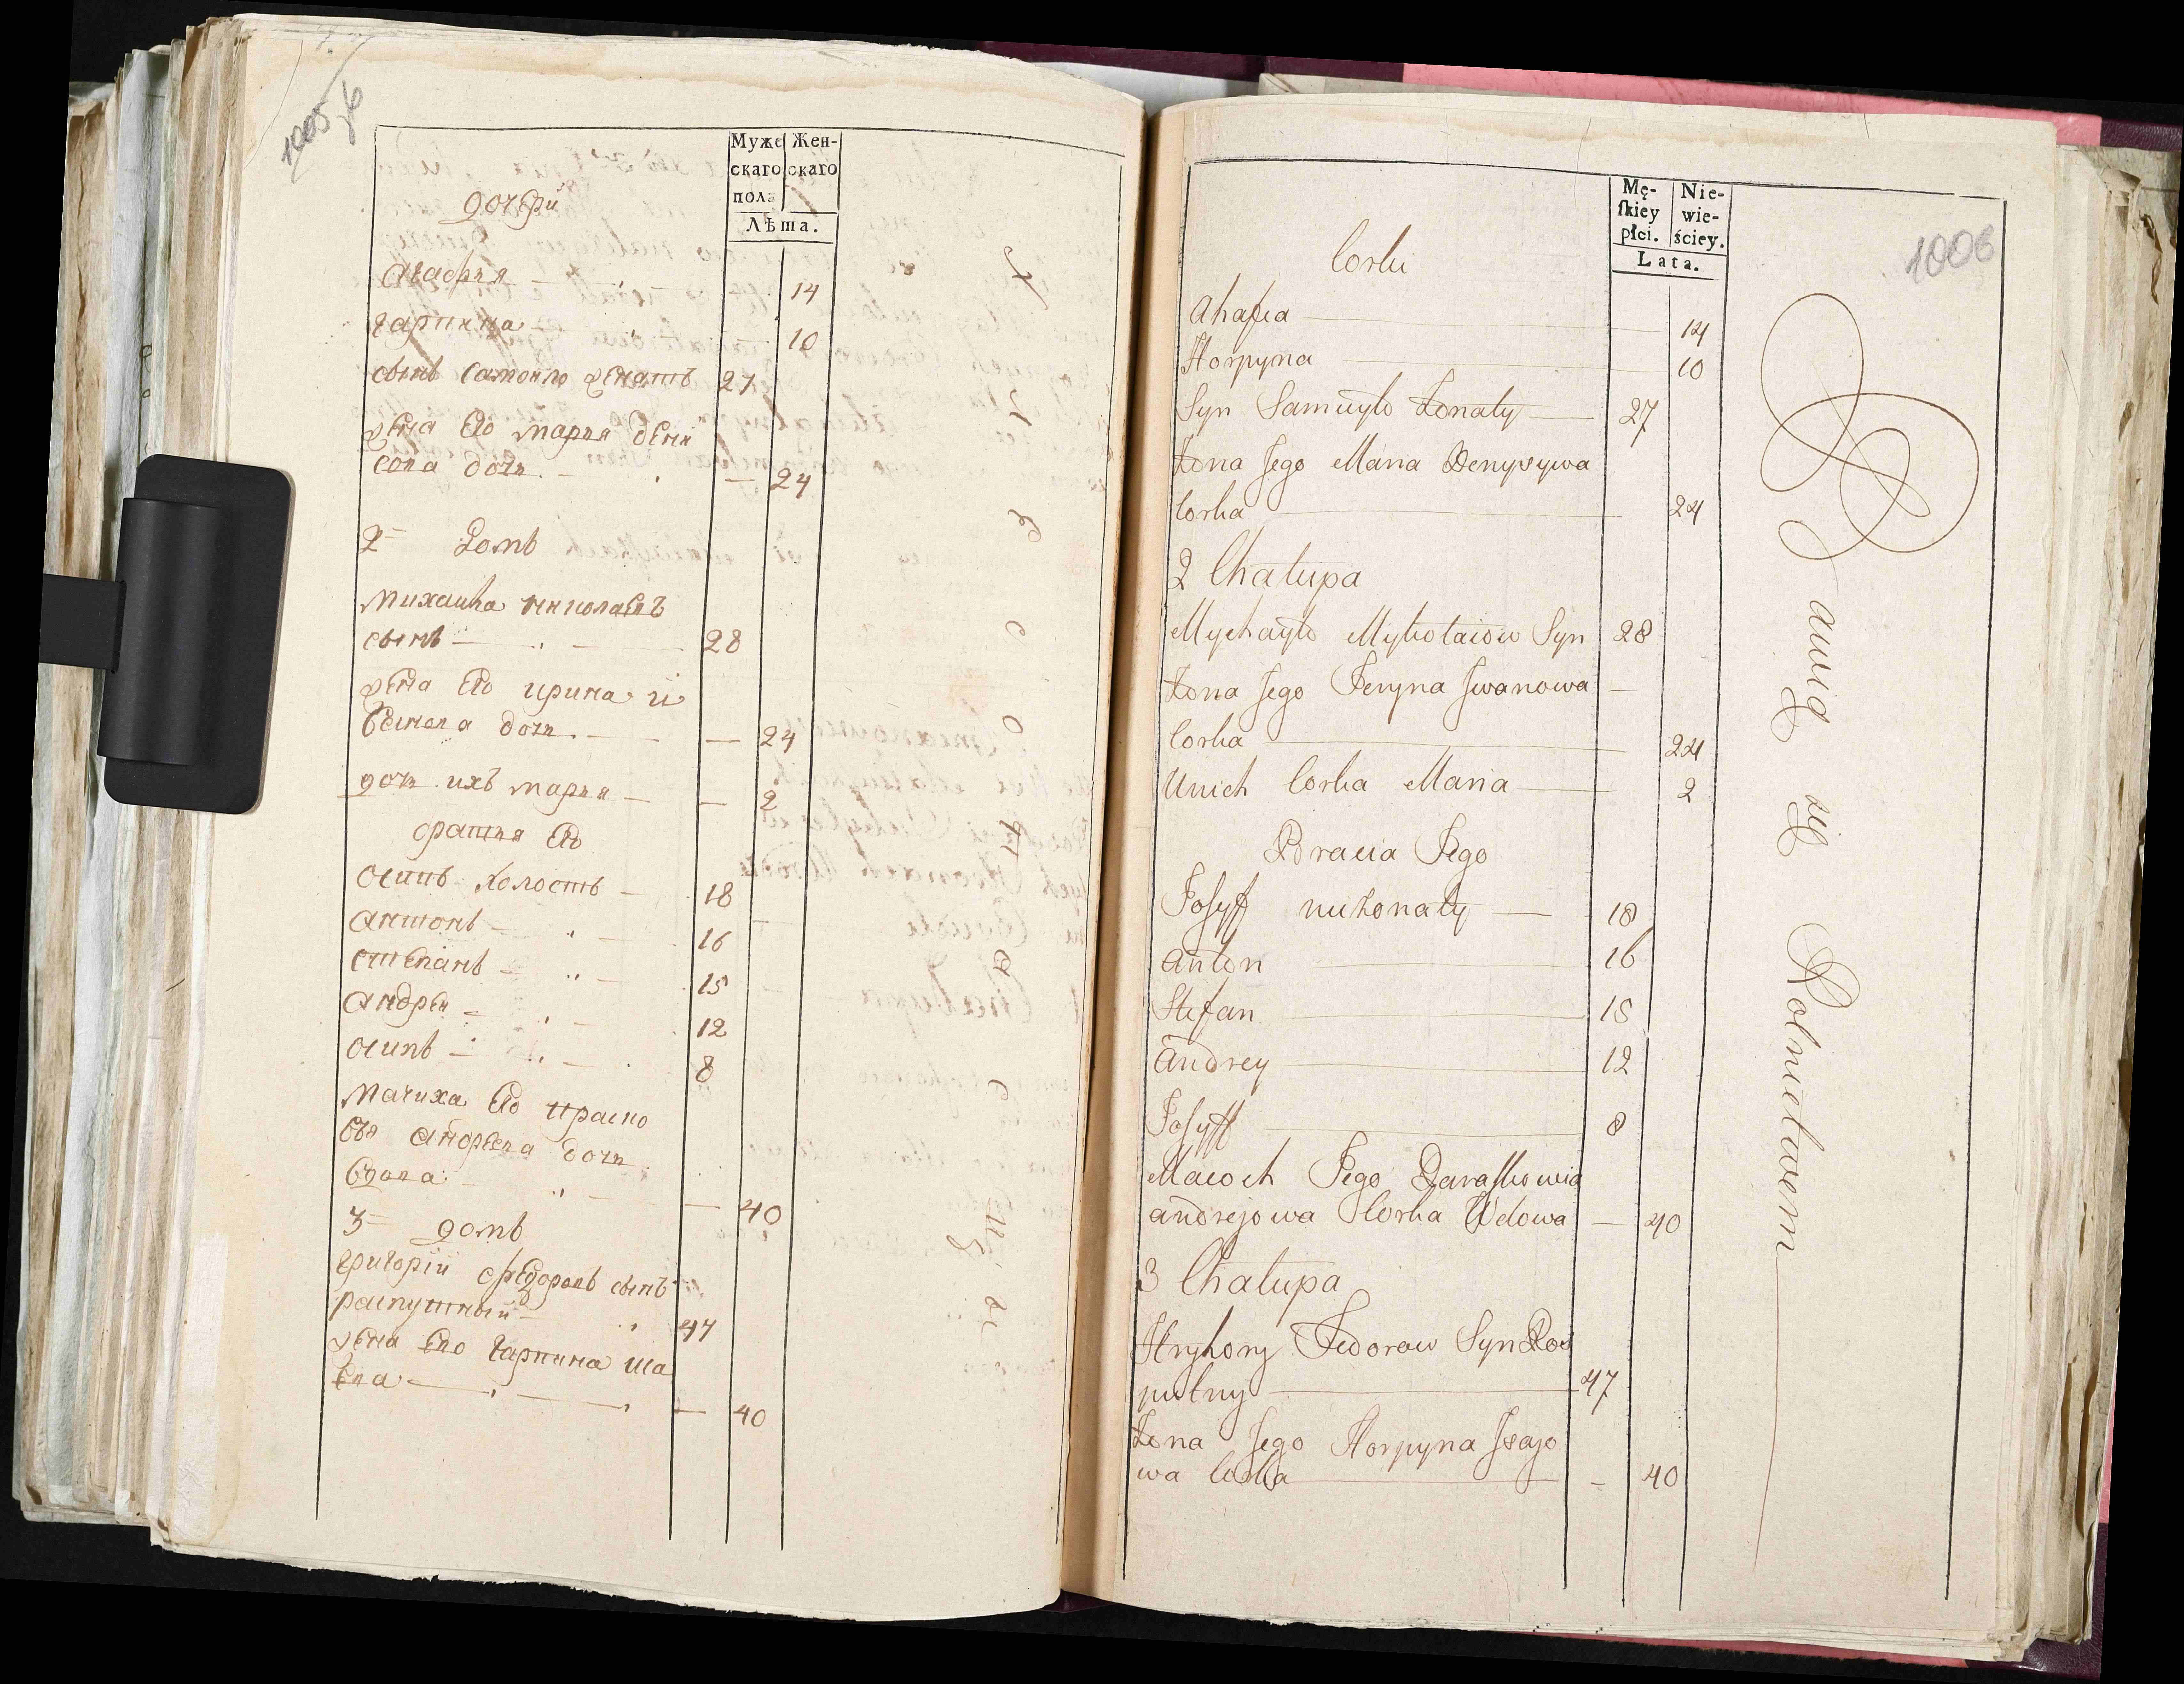 1005 зв
Муже Жен-
скаго скаго
пола
Лѣта.
дочери
Агафия 14
Гарпина 10
сынъ Самоило женатъ 27
жена Его Мария дени
сова дочь 24
2 Домъ
Михаила Николаевъ
сынъ 28
жена Его Ирина И
ванова дочь 24
дочь ихъ Мария 2
братия Его
Осипъ холостъ 18
Антонъ 16
Степанъ 15
Андреи 12
Осипъ 8
Мачиха Его Праско
вя Андреева дочь
вдова 40
3 домъ
Григорий Федоровъ сынъ
распутный 47
жена Его Гарпина Иса
Ева 40
1006
Mę- Nie-
skiey wie-
płci. ściey.
Lata.
Corki
Ahafia 14
Horpyna 10
Syn Samuyło Żonaty 27
Żona Jego Maria Denysywa
Corka 24
2 Chałupa
Mychayło Mykołaiow Syn 28
Żona Jego Jeryna Jwanowa
Corka 24
Unich Corka Maria 2
Bracia Jego
Josyff nieżonaty 18
Anton 16
Stefan 15
Andrey 12
Josyff 8
Macoch Jego Paraskowia
Andrejowa Corka Wdowa 40
3 Chałupa
Hryhory Fedorow Syn Ros
putny 47
Żona Jego Horpyna Jsajo
wa Corka 40
Bawią się Rolnictwem